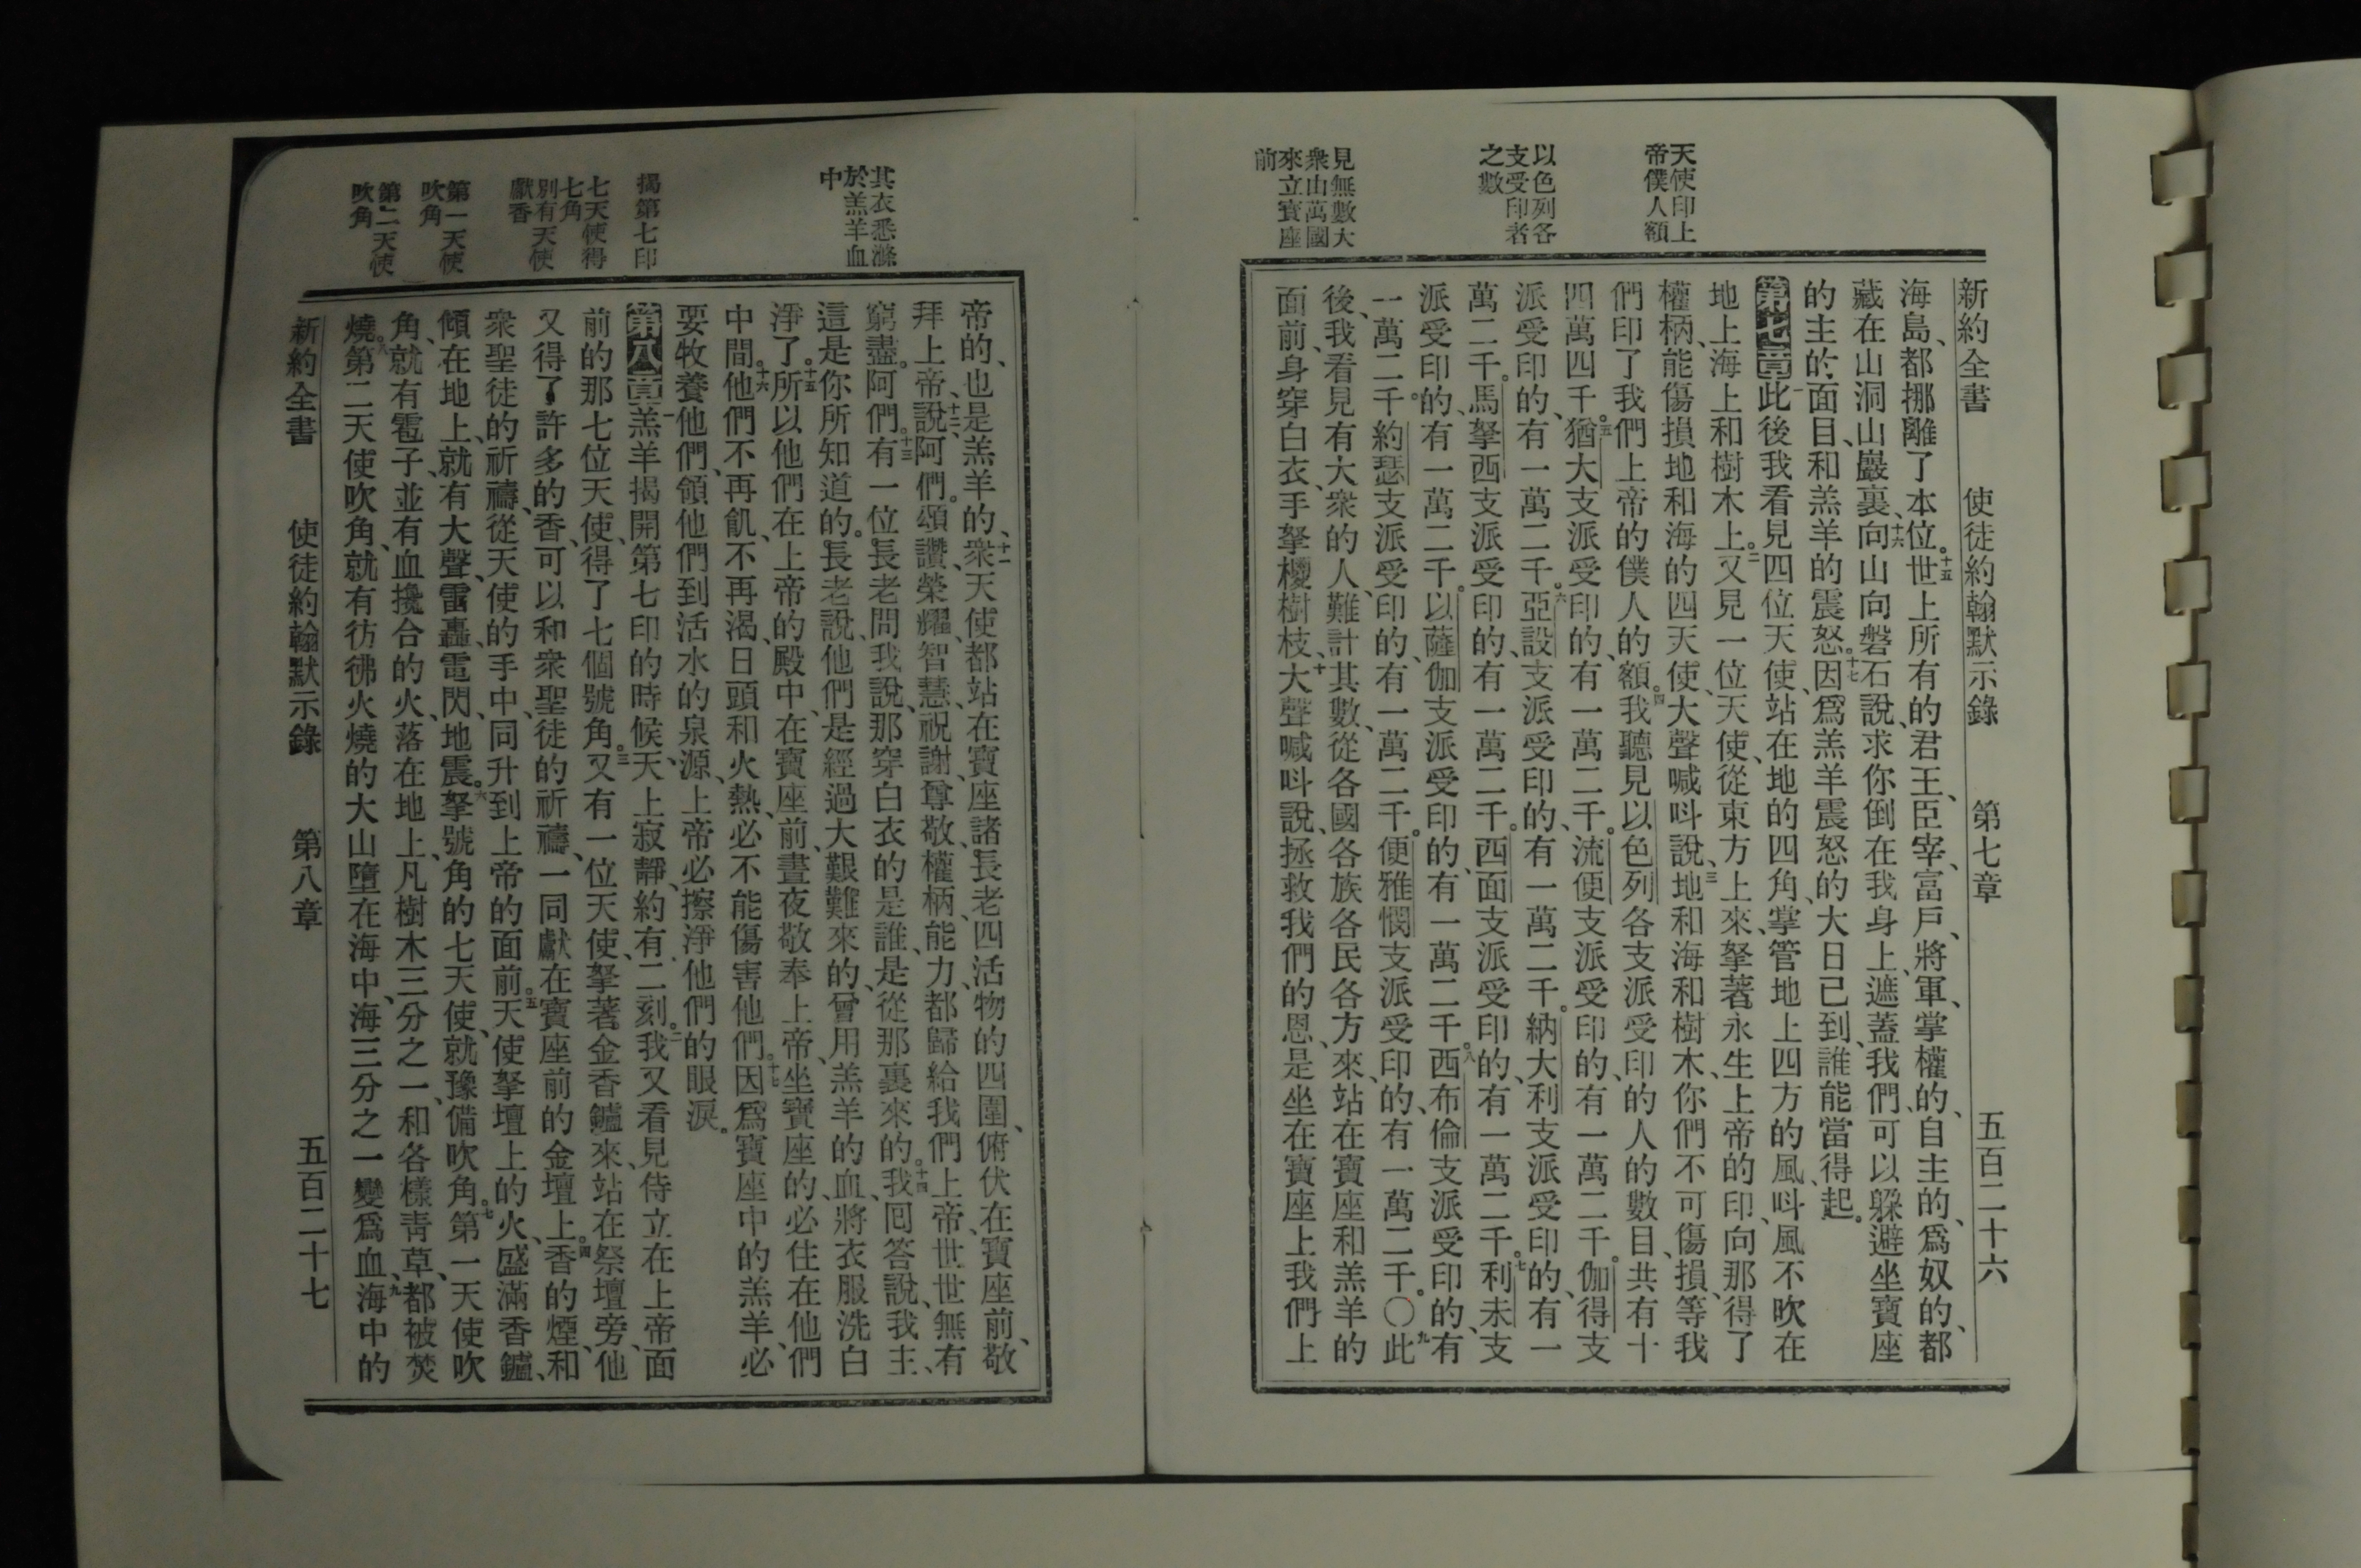 新約全書　使徒約翰默示錄　第七章　五百二十六
天使印上
帝僕人額
以色列各
支受印者
之數
見無數大
衆由萬國
來立寶座
前
海島、都挪離了本位。十五世上所有的君王、臣宰、富戶、將軍、掌權的、自主的、爲奴的、都
藏在山洞山巖裏、十六向山向磐石說、求你倒在我身上、遮蓋我們、可以躱避坐寶座
的主的面目、和羔羊的震怒。十七因爲羔羊震怒的大日已到、誰能當得起。
第七章一此後我看見四位天使、站在地的四角、掌管地上四方的風、呌風不吹在
地上海上和樹木上。二又見一位天使、從東方上來、拏著永生上帝的印、向那得了
權柄、能傷損地和海的四天使、大聲喊呌說、三地和海和樹木、你們不可傷損、等我
們印了我們上帝的僕人的額。四我聽見以色列各支派受印的人的數目、共有十
四萬四千。五猶大支派受印的、有一萬二千。流便支派受印的、有一萬二千。伽得支
派受印的、有一萬二千。六亞設支派受印的、有一萬二千。納大利支派受印的、有一
萬二千。馬拏西支派受印的、有一萬二千。西面支派受印的、有一萬二千。七利未支
派受印的、有一萬二千。以薩伽支派受印的、有一萬二千。八西布倫支派受印的、有
一萬二千。約瑟支派受印的、有一萬二千。便雅憫支派受印的、有一萬二千。〇九此
後、我看見有大衆的人、難計其數、從各國各族各民各方來、站在寶座和羔羊的
面前、身穿白衣、手拏椶樹枝、十大聲喊呌說、拯救我們的恩、是坐在寶座上我們上
其衣悉滌
於羔羊血
中
揭第七印
七天使得
七角
別有天使
獻香
第一天使
吹角
第二天使
吹角
帝的、也是羔羊的、十一衆天使、都站在寶座諸長老四活物的四圍、俯伏在寶座前、敬
拜上帝、十二說、阿們。頌讚、榮耀、智慧、祝謝、尊敬、權柄、能力、都歸給我們上帝、世世無有
窮盡。阿們。十三有一位長老問我說、那穿白衣的是誰、是從那裏來的。十四我囘答說、我主、
這是你所知道的。長老說、他們是經過大艱難來的、曾用羔羊的血、將衣服洗白
淨了。十五所以他們在上帝的殿中、在寶座前、晝夜敬奉上帝、坐寶座的、必住在他們
中間。十六他們不再飢、不再渴、日頭和火熱、必不能傷害他們。十七因爲寶座中的羔羊、必
要牧養他們、領他們到活水的泉源、上帝必擦淨他們的眼淚。
第八章一羔羊揭開第七印的時候、天上寂靜、約有二刻。二我又看見侍立在上帝面
前的那七位天使、得了七個號角。三又有一位天使、拏著金香鑪來、站在祭壇旁、他
又得了許多的香、可以和衆聖徒的祈禱、一同獻在寶座前的金壇上。四香的煙、和
衆聖徒的祈禱、從天使的手中、同升到上帝的面前。五天使拏壇上的火、盛滿香鑪、
傾在地上、就有大聲、雷轟、電閃、地震。六拏號角的七天使、就豫備吹角。七第一天使吹
角、就有雹子、並有血攙合的火、落在地上、凡樹木三分之一、和各樣青草、都被焚
燒。八第二天使吹角、就有彷彿火燒的大山墮在海中、海三分之一變爲血、九海中的
新約全書　使徒約翰默示錄　第八章　五百二十七